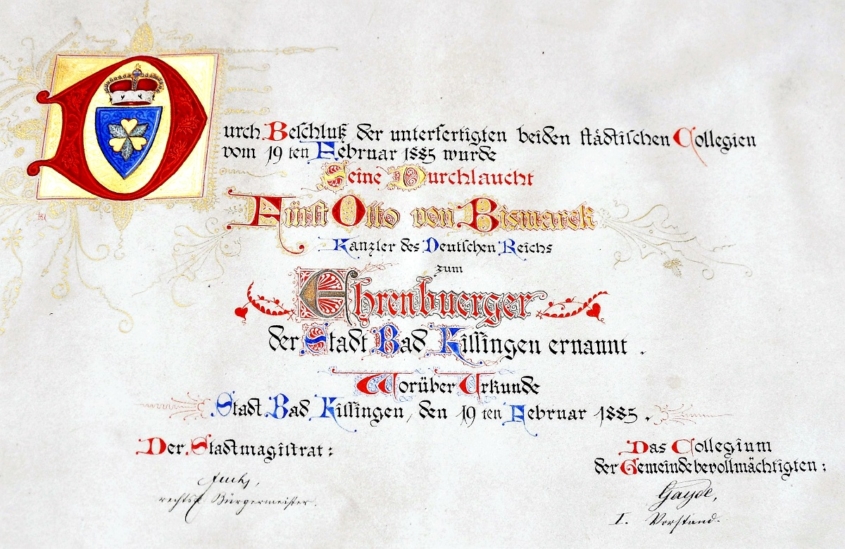 Durch Beschluß der unterfertigten beiden städtischen Collegien
vom 19 ten Februar 1885 wurde
Seine Durchlaucht
Fürst Otto von Bismarck
Kanzler des Deutschen Reichs
zum
Ehrenbuerger
der Stadt Bad Kissingen ernannt.
Worüber Urkunde
Stadt Bad Kissingen, den 19 ten Februar 1885.
Der Stadtmagistrat:
Fuchs,
rechtsk Bürgermeister.
Das Collegium
der Gemeindebevollmächtigten:
Gayde,
I. Vorstand.